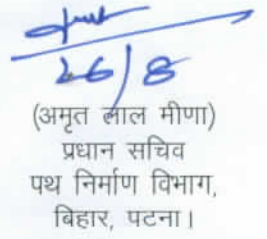 26/8
(अमृत लाल मीणा)
प्रधान सचिव
पथ निर्माण विभाग,
बिहार, पटना।